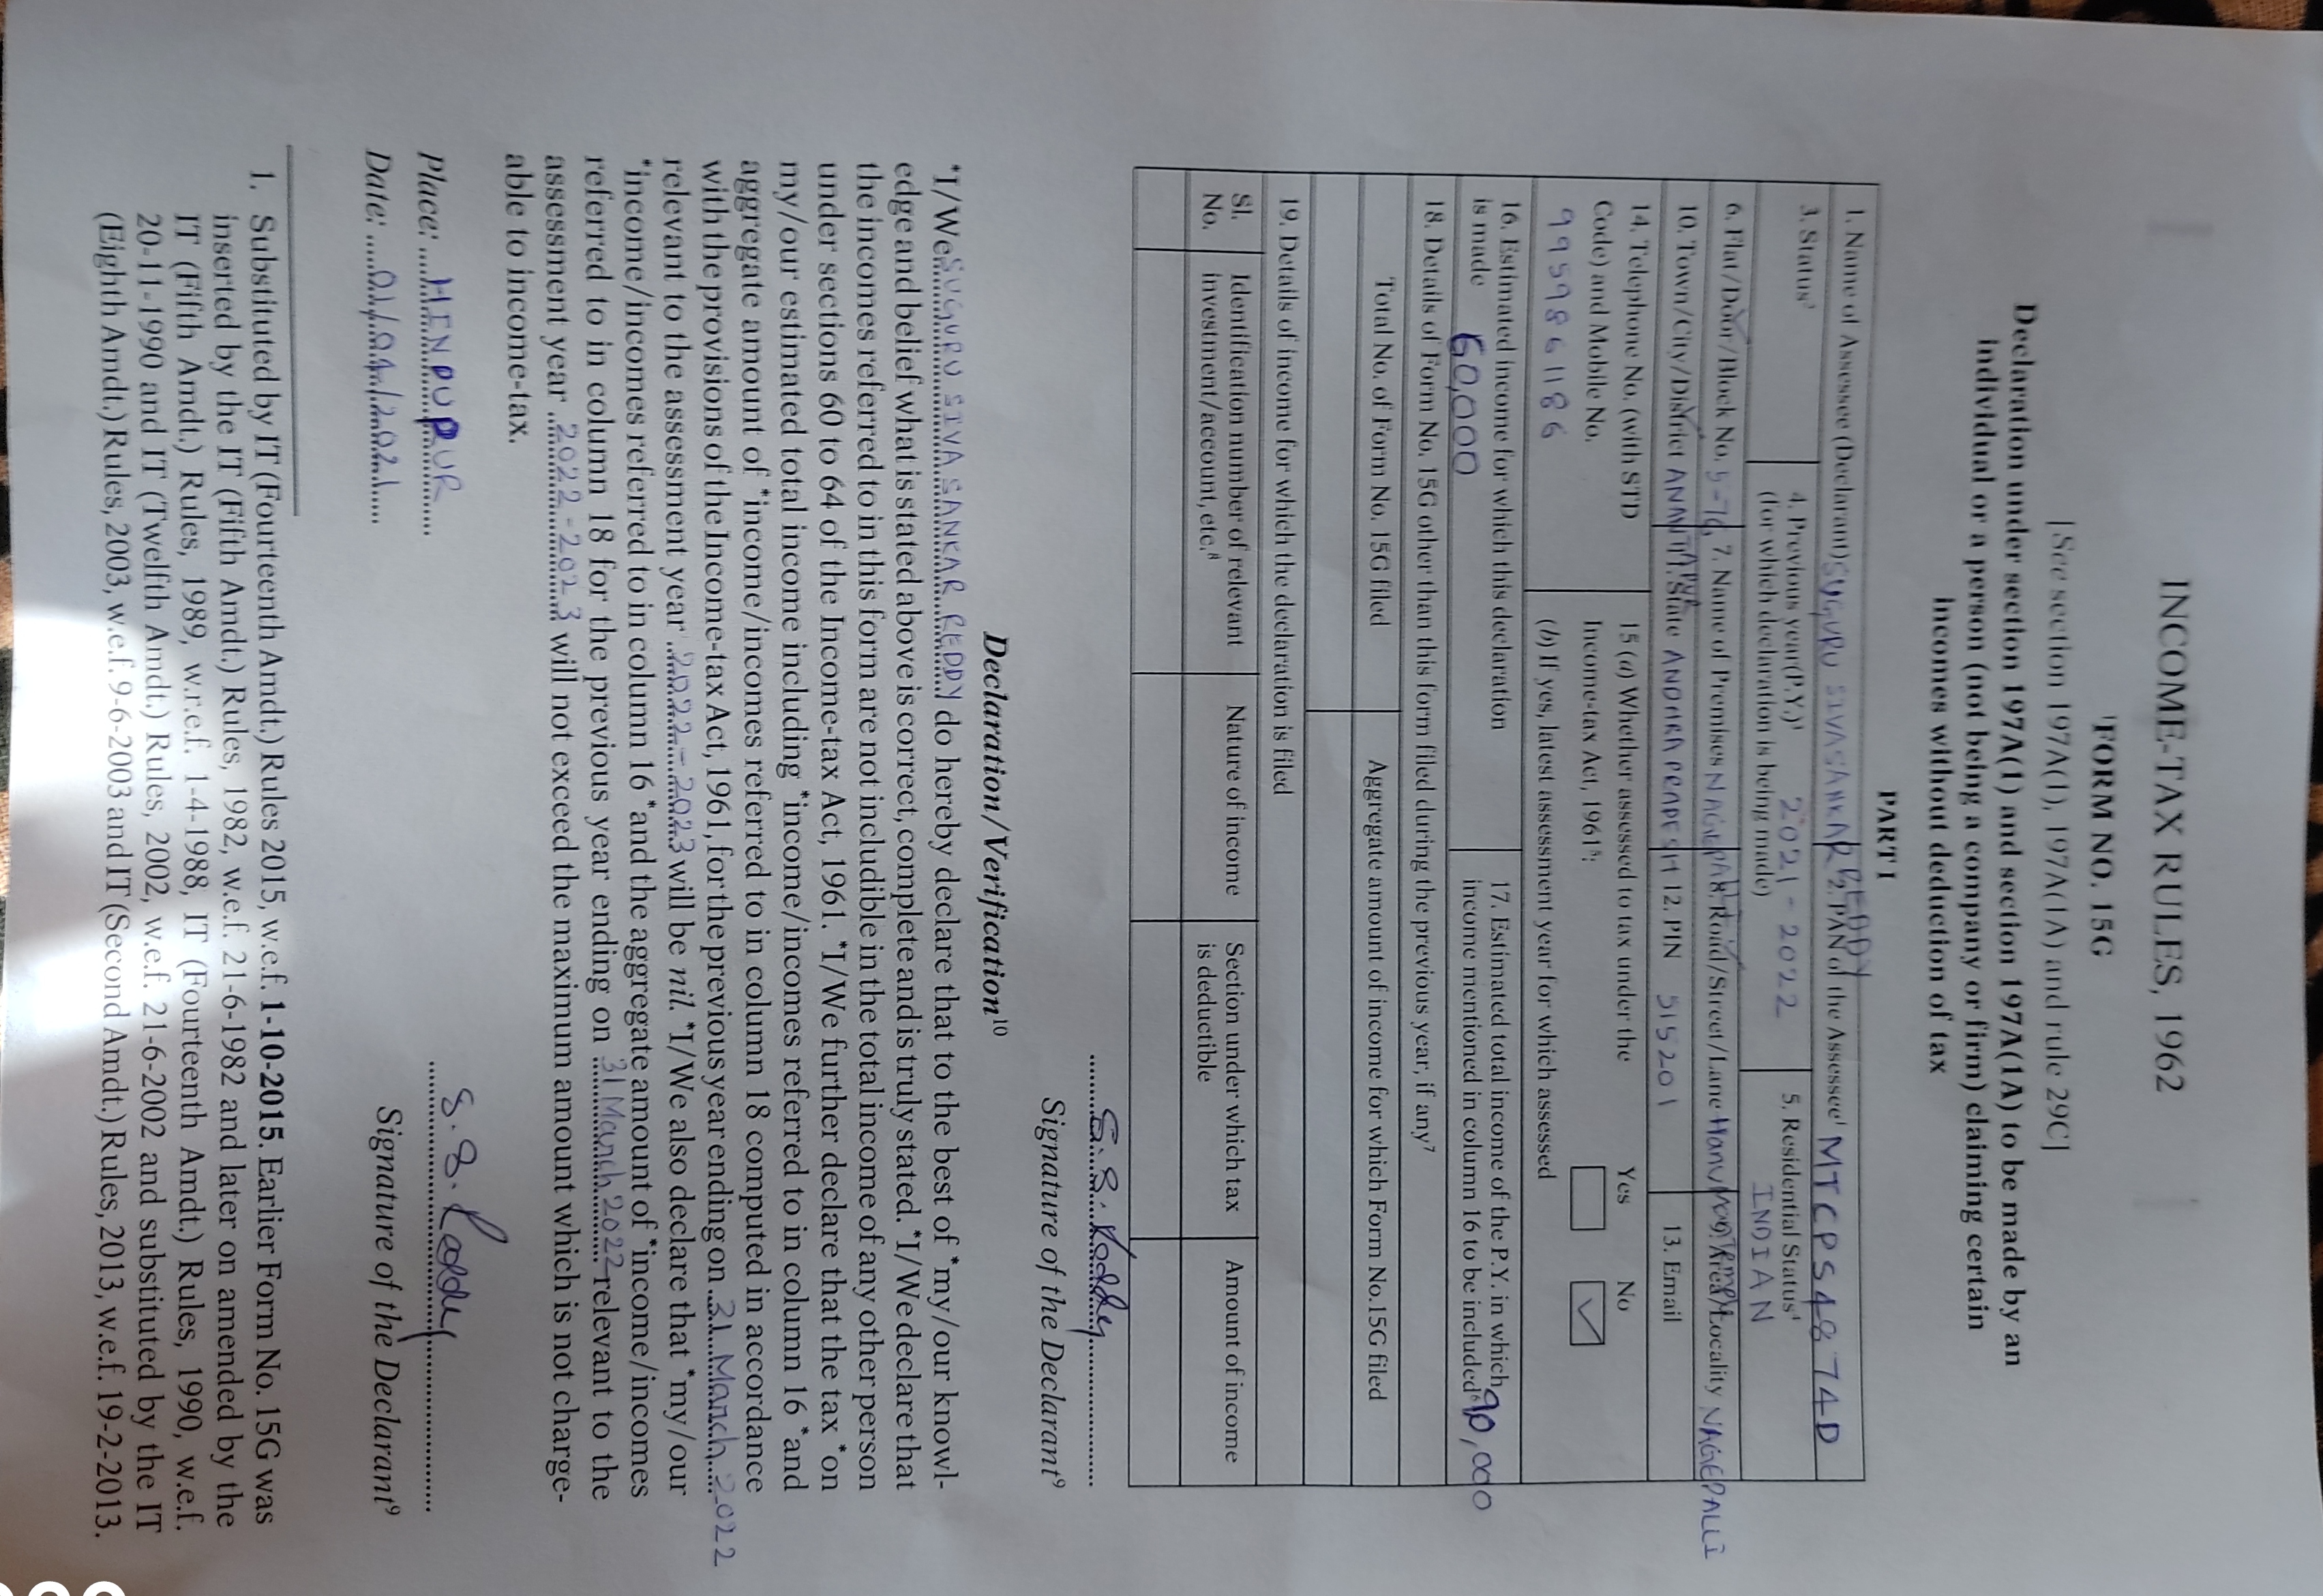 INCOME-TAX RULES, 1962
¹FORM NO. 15G
[See section 197A(1), 197A(1A) and rule 29C]
Declaration under section 197A(1) and section 197A(1A) to be made by an
individual or a person (not being a company or firm) claiming certain
incomes without deduction of tax
PART I
1. Name of Assessee (Declarant) SUGURU SIVA SANKAR REDDY 2. PAN of the Assessee¹ MTCPS4874D
3. Status² 4. Previous year(P.Y.)³ 2021-2022 5. Residential Status⁴
(for which declaration is being made) INDIAN
6. Flat/Door/Block No. 5-76, 7. Name of Premises 8. Road/Street/Lane 9. Area/Locality NAGEPALLI
10. Town/City/District ANANTAPUR 11. State ANDHRA PRADESH 12. PIN 515201 13. Email
14. Telephone No. (with STD 15 (a) Whether assessed to tax under the Yes No
Code) and Mobile No. Income-tax Act, 1961⁵:
9959861186 (b) If yes, latest assessment year for which assessed
16. Estimated income for which this declaration 17. Estimated total income of the P.Y. in which
is made 60,000 income mentioned in column 16 to be included⁶ 90,000
18. Details of Form No. 15G other than this form filed during the previous year, if any⁷
Total No. of Form No. 15G filed Aggregate amount of income for which Form No.15G filed
19. Details of income for which the declaration is filed
Sl. Identification number of relevant Nature of income Section under which tax Amount of income
No. investment/account, etc.⁸ is deductible
S.S. Reddy
Signature of the Declarant⁹
Declaration/Verification¹⁰
*I/We SUGURU SIVA SANKAR REDDY do hereby declare that to the best of *my/our knowl-
edge and belief what is stated above is correct, complete and is truly stated. *I/We declare that
the incomes referred to in this form are not includible in the total income of any other person
under sections 60 to 64 of the Income-tax Act, 1961. *I/We further declare that the tax *on
my/our estimated total income including *income/incomes referred to in column 16 *and
aggregate amount of *income/incomes referred to in column 18 computed in accordance
with the provisions of the Income-tax Act, 1961, for the previous year ending on 31 March 2022
relevant to the assessment year 2022-2023 will be nil. *I/We also declare that *my/our
*income/incomes referred to in column 16 *and the aggregate amount of *income/incomes
referred to in column 18 for the previous year ending on 31 March 2022 relevant to the
assessment year 2022-2023 will not exceed the maximum amount which is not charge-
able to income-tax.
S.S. Reddy
Place: HINDUPUR
Date: 01/04/2021 Signature of the Declarant⁹
1. Substituted by IT (Fourteenth Amdt.) Rules 2015, w.e.f. 1-10-2015. Earlier Form No. 15G was
inserted by the IT (Fifth Amdt.) Rules, 1982, w.e.f. 21-6-1982 and later on amended by the
IT (Fifth Amdt.) Rules, 1989, w.r.e.f. 1-4-1988, IT (Fourteenth Amdt.) Rules, 1990, w.e.f.
20-11-1990 and IT (Twelfth Amdt.) Rules, 2002, w.e.f. 21-6-2002 and substituted by the IT
(Eighth Amdt.) Rules, 2003, w.e.f. 9-6-2003 and IT (Second Amdt.) Rules, 2013, w.e.f. 19-2-2013.